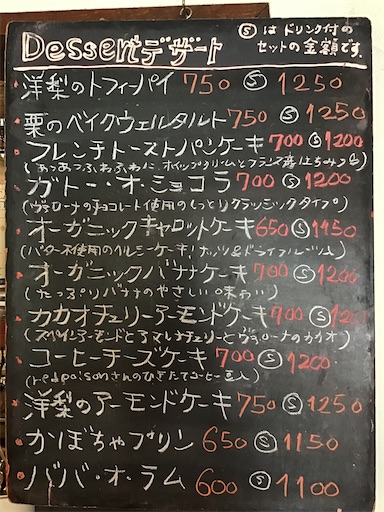 Dessertデザート
Ⓢはドリンク付の
セットの金額です。
洋梨のトフィーパイ 750 Ⓢ 1250
栗のベイクウェルタルト 750 Ⓢ 1250
フレンチトーストパンケーキ 700 Ⓢ 1200
(あつあつふわふわに ホイップクリームとフランス産はちみつ)
ガトー・オ・ショコラ 700 Ⓢ 1200
(ヴァローナのチョコレート使用のしっとりクラッシックタイプ)
オーガニックキャロットケーキ 650 Ⓢ 1150
(バター不使用のヘルシーケーキ!ナッツ&ドライフルーツ入)
オーガニックバナナケーキ 700 Ⓢ 1200
(たっぷりバナナのやさしい味わい)
カカオチェリーアーモンドケーキ 700 Ⓢ 120
(スペインアーモンドとアマレナチェリーとヴァローナのカカオ)
コーヒーチーズケーキ 700 Ⓢ 1200
(さんのひきたてコーヒー豆入)
洋梨のアーモンドケーキ 750 Ⓢ 1250
かぼちゃプリン 650 Ⓢ 1150
ババ・オ・ラム 600 Ⓢ 1100